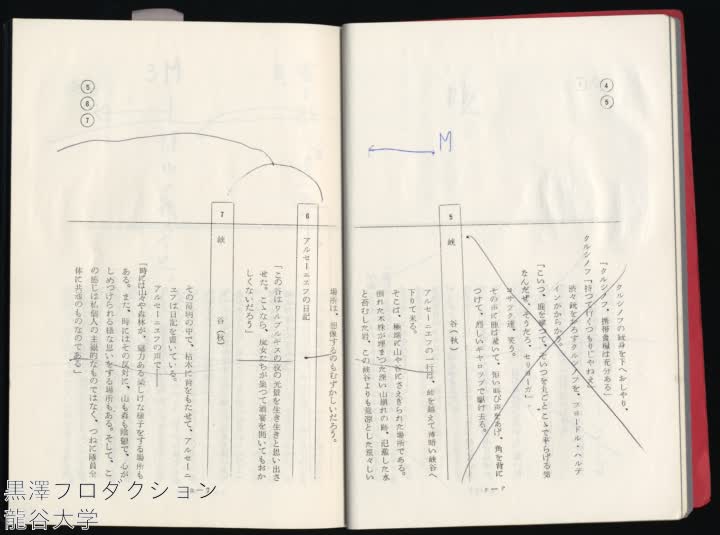 ④
⑤
クルジノフの銃身を下へおしやり、
「クルジノフ、携帯食糧は充分ある」
クルジノフ「持つて行くつもりじやねえ」
渋々銃をおろすクルジノフを、フヨードル・ハルテ
インがからかう。
「こいつ、鹿を撃つて、そいつを丸ごとこゝで平らげる気
なんだぜ。そうだろ、セリョーガ」
コサック達、笑う。
その声に鹿は驚いて、短い叫び声をあげ、角を背に
つけて、烈しいギヤロップで駆け去る。
M
5 峡谷(秋)
アルセーニエフの一行は、峠を越えて薄暗い峡谷へ
下りて来る。
そこは、極端に山や谷にさえぎられた場所である。
倒れた木株が埋まつた深い山崩れの跡、氾濫した水
と苔むした岩、この峡谷よりも荒涼とした荒々しい
場所は、想像するのもむずかしいだろう。
⑤
⑥
⑦
6 アルセーニエフの日記
「この谷はワルプルギスの夜の光景を生き生きと思い出さ
せた。こゝなら、魔女たちが集つて酒宴を開いてもおか
しくないだろう」
7 峡谷(秋)
その荷物の中で、枯木に背をもたせて、アルセーニ
エフは日記を書いている。
アルセーニエフの声で――
「時には山々や森林が、魅力ある楽しげな様子をする場所も
ある。また、時にはその反対に、山も森も陰鬱で、心が
しめつけられる様な思いをする場所もある。そして、こ
の感じは私個人の主観的なものではなく、つねに隊員全
体に共通のものなのである」
黒澤プロダクション
龍谷大学